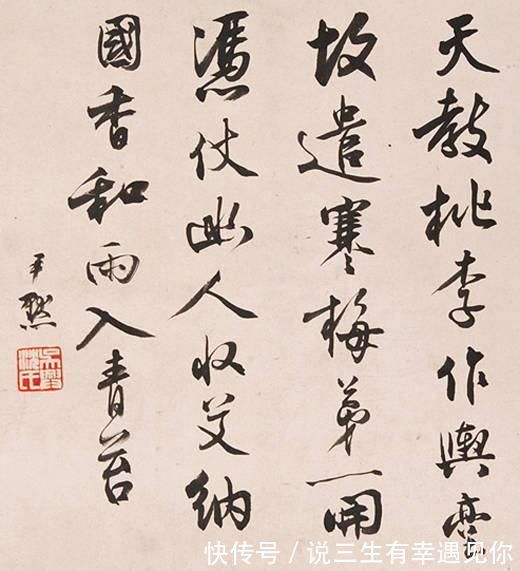 天教桃李作輿臺
故遣寒梅第一開
憑仗幽人收艾納
國香和雨入青苔
尹默
吳興沈氏
快传号/说三生有幸遇见你